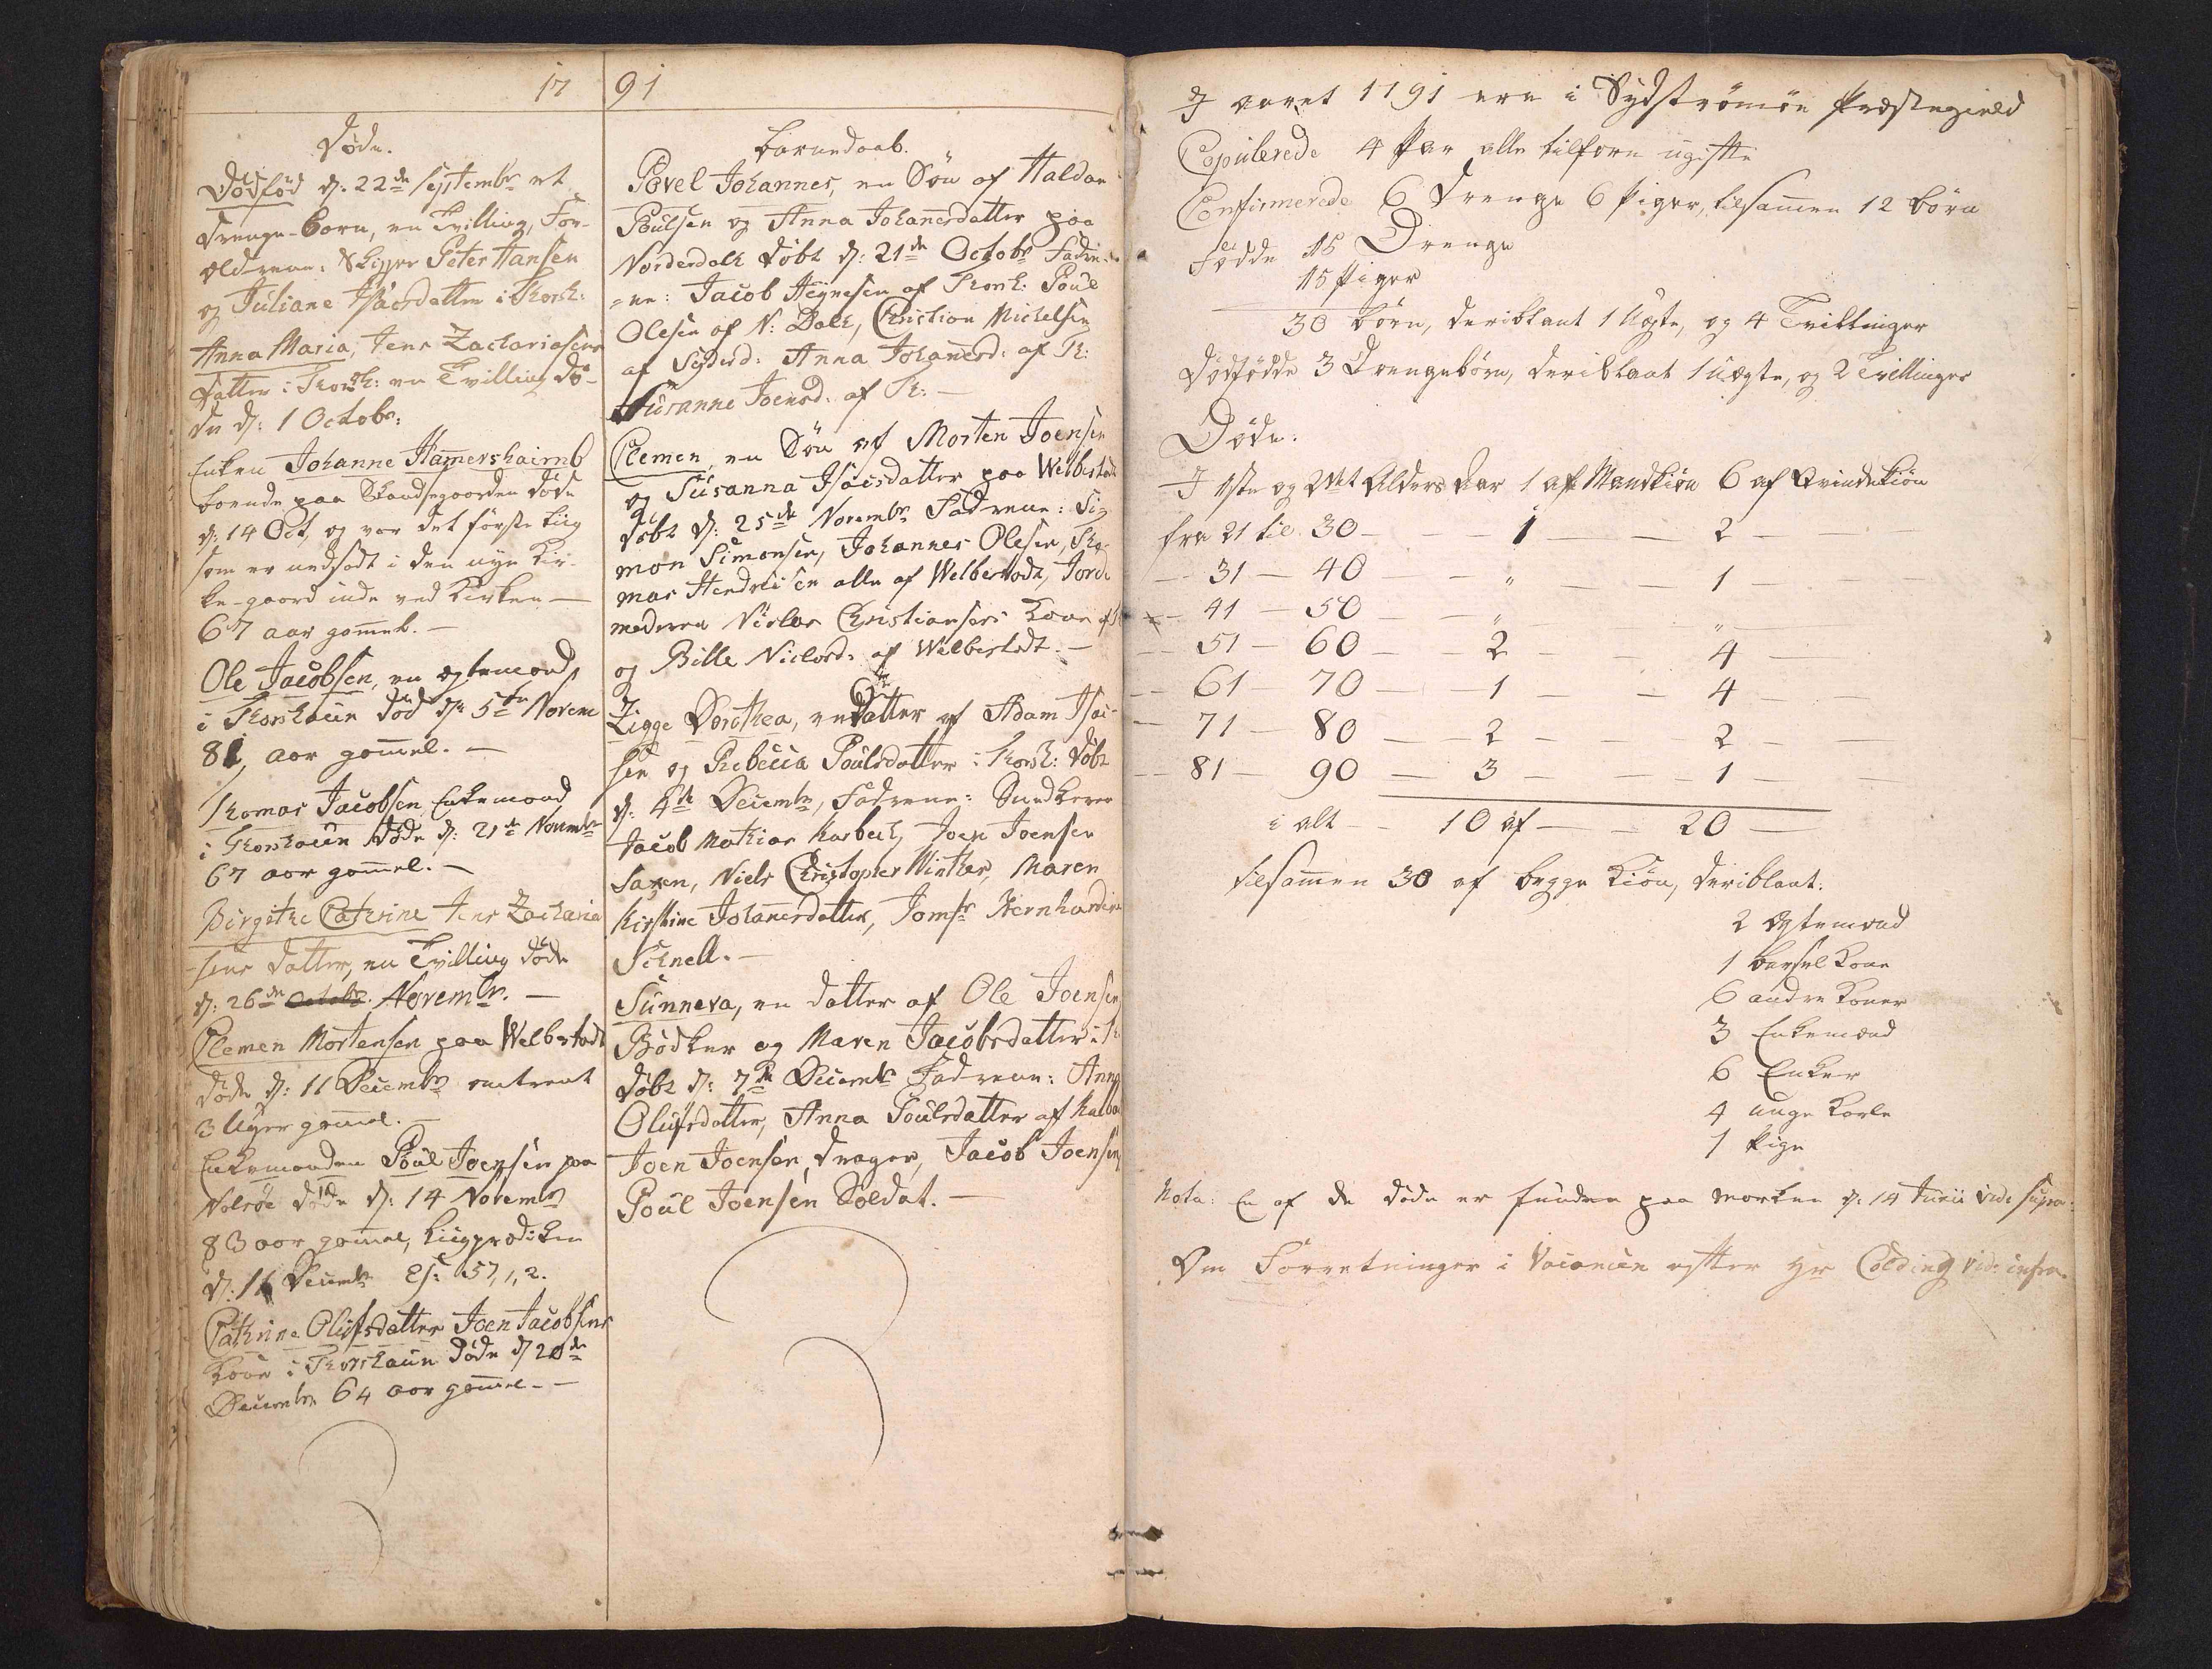 17 91
Døde.
Dødfød d: 22de Septembr et
Drenge-Barn, en Tvilling, For-
ældrene: Skipper Peter Hansen
og Juliane Isacsdatter i Thorsh:
Anna Maria, Jens Zachariasens
Datter i Thorsh: en Tvilling dø-
de d: 1 Octobr:
Enken Johanne Hamershaimb
boende paa Skandsegaarden døde
d: 14 Oct, og var det første Liig
som er nedsadt i den nye Kir-
ke-gaard inde ved Kirken —
67 aar gamel. —
Ole Jacobsen, en ægtemand
i Thorshaun død d: 5te Novem
81, aar gamel. —
Thomas Jacobsen Enkemand
i Thorshaun døde d: 21de Novembr
67 aar gamel. —
Birgithe Cathrine Jens Zacharia
-sens Datter, en Tvilling døde
d: 26de Octobr. Novembr. —
Clemen Mortensen paa Welbestadt
døde d: 11 Decembr omtrent
3 Uger gamel. —
Enkemanden Poul Joensen paa
Nolsøe døde d: 14 Novembr
83 aar gamel, Liigprædiken
d: 16 Decembr Es: 57, 1, 2.
Cathrine Olufsdatter Joen Jacobsens
Kone i Thorshaun døde d 20de
Decembr 64 aar gamel. —
Barnedaab.
Povel Johannes, en Søn af Haldan
Poulsen og Anna Johanesdatter paa
Norderdahl døbt d: 21de Octobr Fadre-
=ne: Jacob Heynesen af Thorsh: Poul
Olesen af N: Dahl, Christian Michelsen
af Syderd: Anna Johanesd: af Th:
Susanne Joensd: af Th: —
Clemen, en Søn af Morten Joensen
og Susanna Isacsdatter paa Welbestadt
døbt d: 25de Novembr Fadrene: Si-
mon Simonsen, Johannes Olesen, Tho-
mas Hendricsen alle af Welbestadt, Jorde
moderen Niclas Christiansens Kone
og Bille Niclasd: af Welbestadt. —
Zigge Dorothea, en Datter af Adam Isac-
sen og Rebecca Poulsdatter i Thorsh: døbt
d: 4de Decembr, Fadrene: Snedkeren
Jacob Mathias Joen Joensen
Saxen, Niels Christopher Winther, Maren
Kirstine Johanesdatter, Jomfr Bernhardine
Schnell. —
Sunneva, en Datter af Ole Joensen
Bødker og Maren Jacobsdatter i
døbt d: 7de Decembr Fadrene: Anna
Olufsdatter, Anna Poulsdatter af
Joen Joensen, Drager, Jacob Joensen,
Poul Joensen Soldat. —
I aaret 1791 ere i Sydstrømøe Præstegield
Copulerede 4 Par alle tilforn ugifte
Confirmerede 6 Drenge 6 Piger, tilsamen 12 Børn
Fødde 15 Drenge
15 Piger
30 Børn, deriblant 1 Uægte, og 4 Tvillinger
Dødfødde 3 Drengebørn, deriblant 1 Uægte, og 2 Tvillinger
Døde.
I 1ste og 2det Alders Aar 1 af Mandkiøn 6 af Qvindekiøn
fra 21 til 30 — — 1 — — 2 — —
— 31 — 40 — „ — 1 — —
— 41 — 50 — „ — „ —
— 51 — 60 — 2 — — 4 —
— 61 — 70 — 1 — — 4 — —
— 71 — 80 — 2 — — 2 — —
— 81 — 90 — 3 — — 1 — —
i alt — 10 af — — 20 —
tilsamen 30 af begge Kiøn, deriblant:
2 Ægtemænd
1 Barsel Kone
6 andre Koner
3 Enkemænd
6 Enker
4 unge Karle
1 Pige
Nota: En af de døde er funden paa Marken d: 14 Junii vide supra:
Om Forretninger i Vacancen efter Hr Colding vide infra.